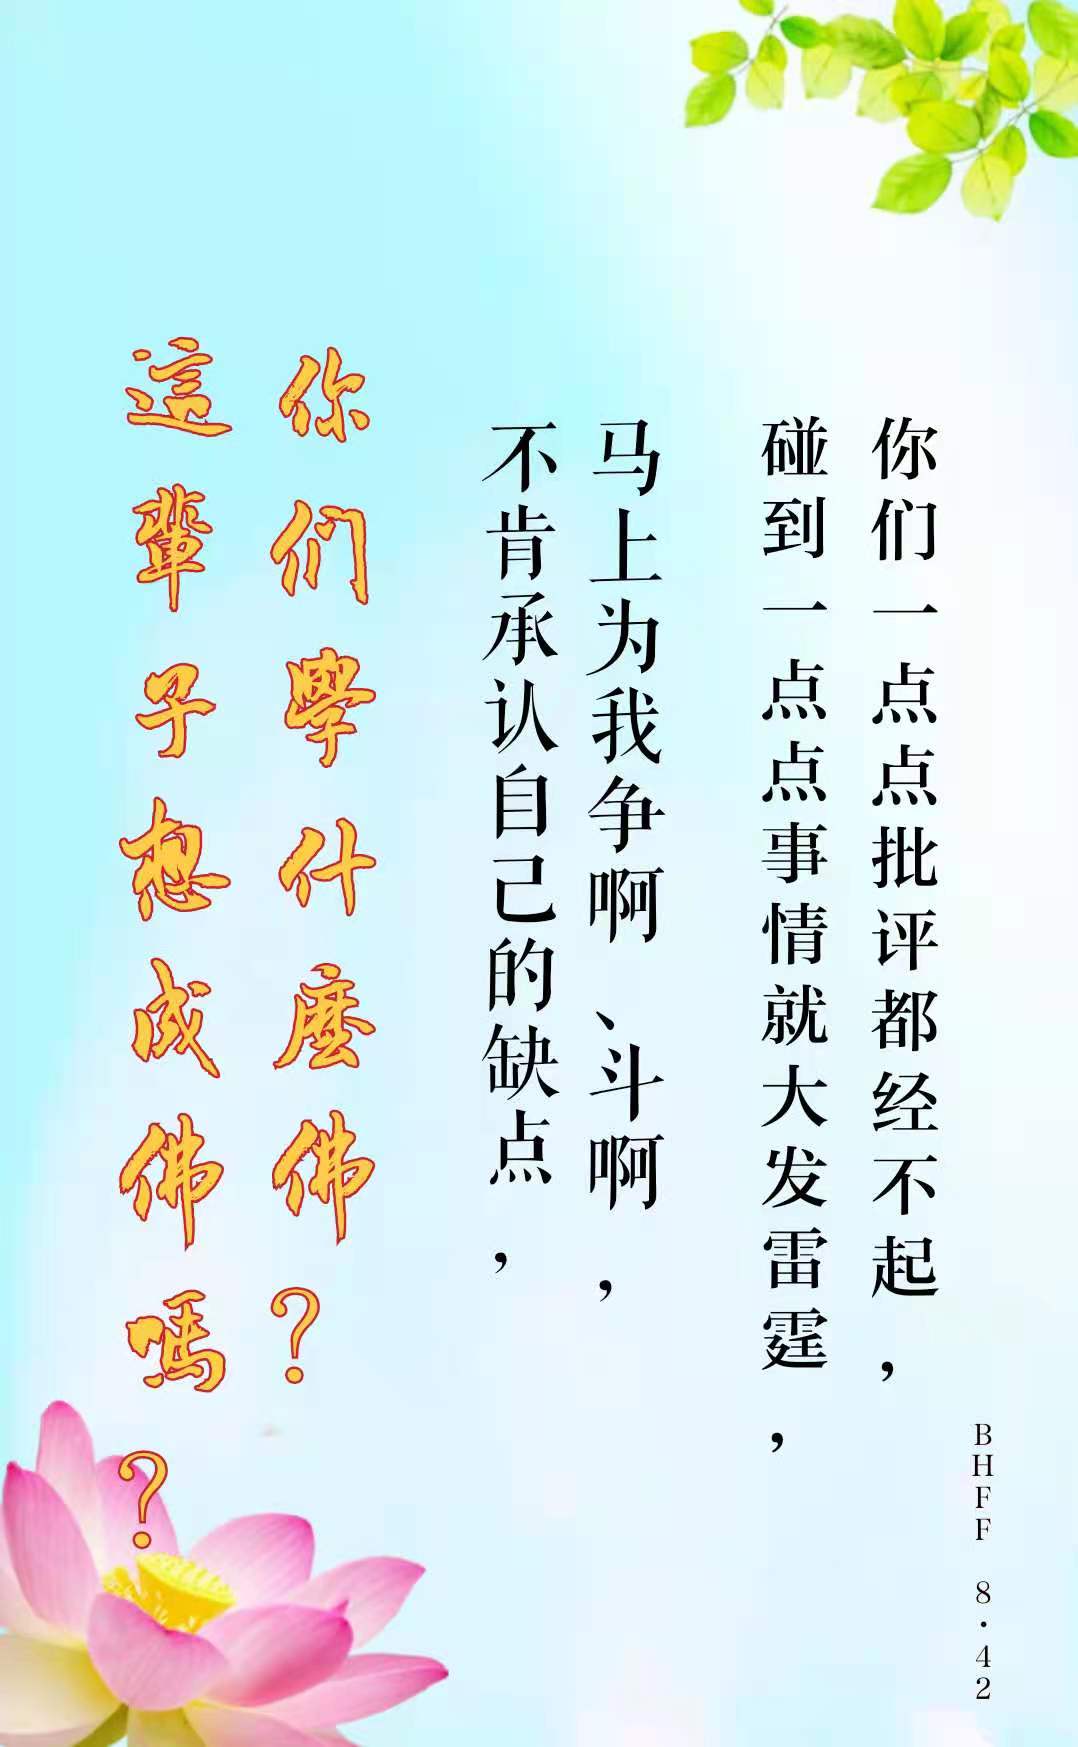 你们一点点批评都经不起，
碰到一点点事情就大发雷霆，
马上为我争啊、斗啊，
不肯承认自己的缺点，
你们學什麼佛？
這輩子想成佛嗎？
BHFF 8·42